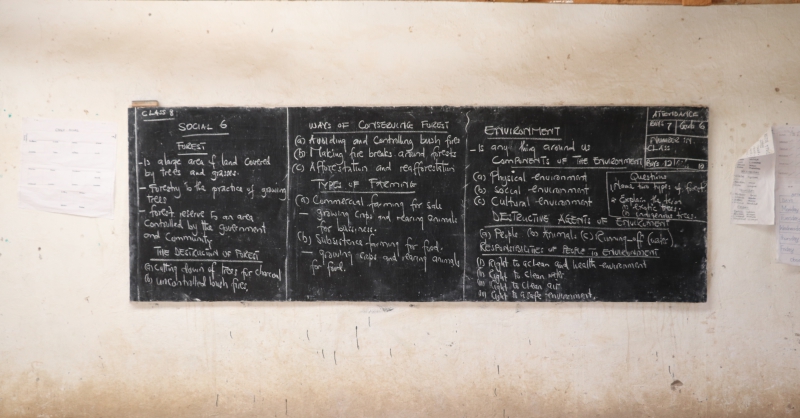 CLASS 8
SOCIAL 6
FOREST
- Is a large area of land covered
by trees and grasses.
- Forestry is the practice of growing
trees
- forest reserve is an area
controlled by the government
and Community
THE DESTRUCTION OF FOREST
(a) Cutting down of trees for charcoal
(b) uncontrolled bush fires.
WAYS OF CONSERVING FOREST
(a) Avoiding and controlling bush fires
(b) Making fire breaks around forests
(c) Afforestation and reafforestation
TYPES OF FARMING
(a) Commercial farming for sale
- growing crops and rearing animals
for business.
(b) Subsistence farming for food.
- growing crops and rearing animals
for food.
ENVIRONMENT
- Is any thing around us
COMPONENTS OF THE ENVIRONMENT
(a) Physical environment
(b) Social environment
(c) Cultural environment
DESTRUCTIVE AGENTS OF ENVIRONMENT
(a) People (b) Animals (c) Running-off (water).
RESPONSIBILITIES OF PEOPLE TO ENVIRONMENT
(i) Right to a clean and health environment
(ii) Right to clean water
(iii) Right to clean air
(iv) Right to a safe environment.
ATTENDANCE
Boys 7 Girls 6
NUMBER IN
CLASS
Boys 12
Questions
Name two types of forest
Explain the term
(i) exotic trees
(ii) indigenous trees.